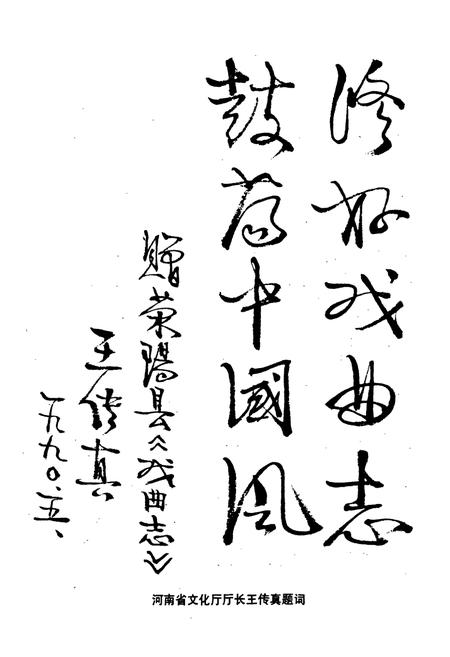 修好戏曲志
鼓荡中國风
赠荥阳县《戏曲志》
王传真
一九九〇.五、
河南省文化厅厅长王传真题词